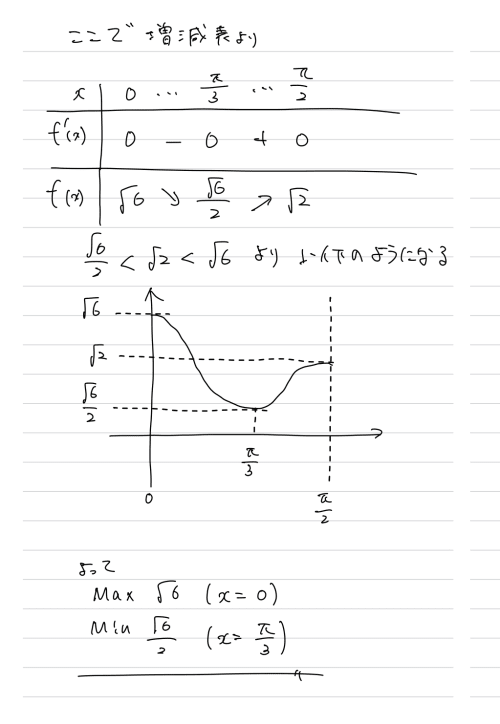 ここで 増減表より
x 0 … π/3 … π/2
f'(x) 0 − 0 + 0
f(x) √6 ↘ √6/2 ↗ √2
√6/2 < √2 < √6 より 以下のようになる
√6
√2
√6/2
π/3
0 π/2
よって
Max √6 (x = 0)
Min √6/2 (x = π/3)